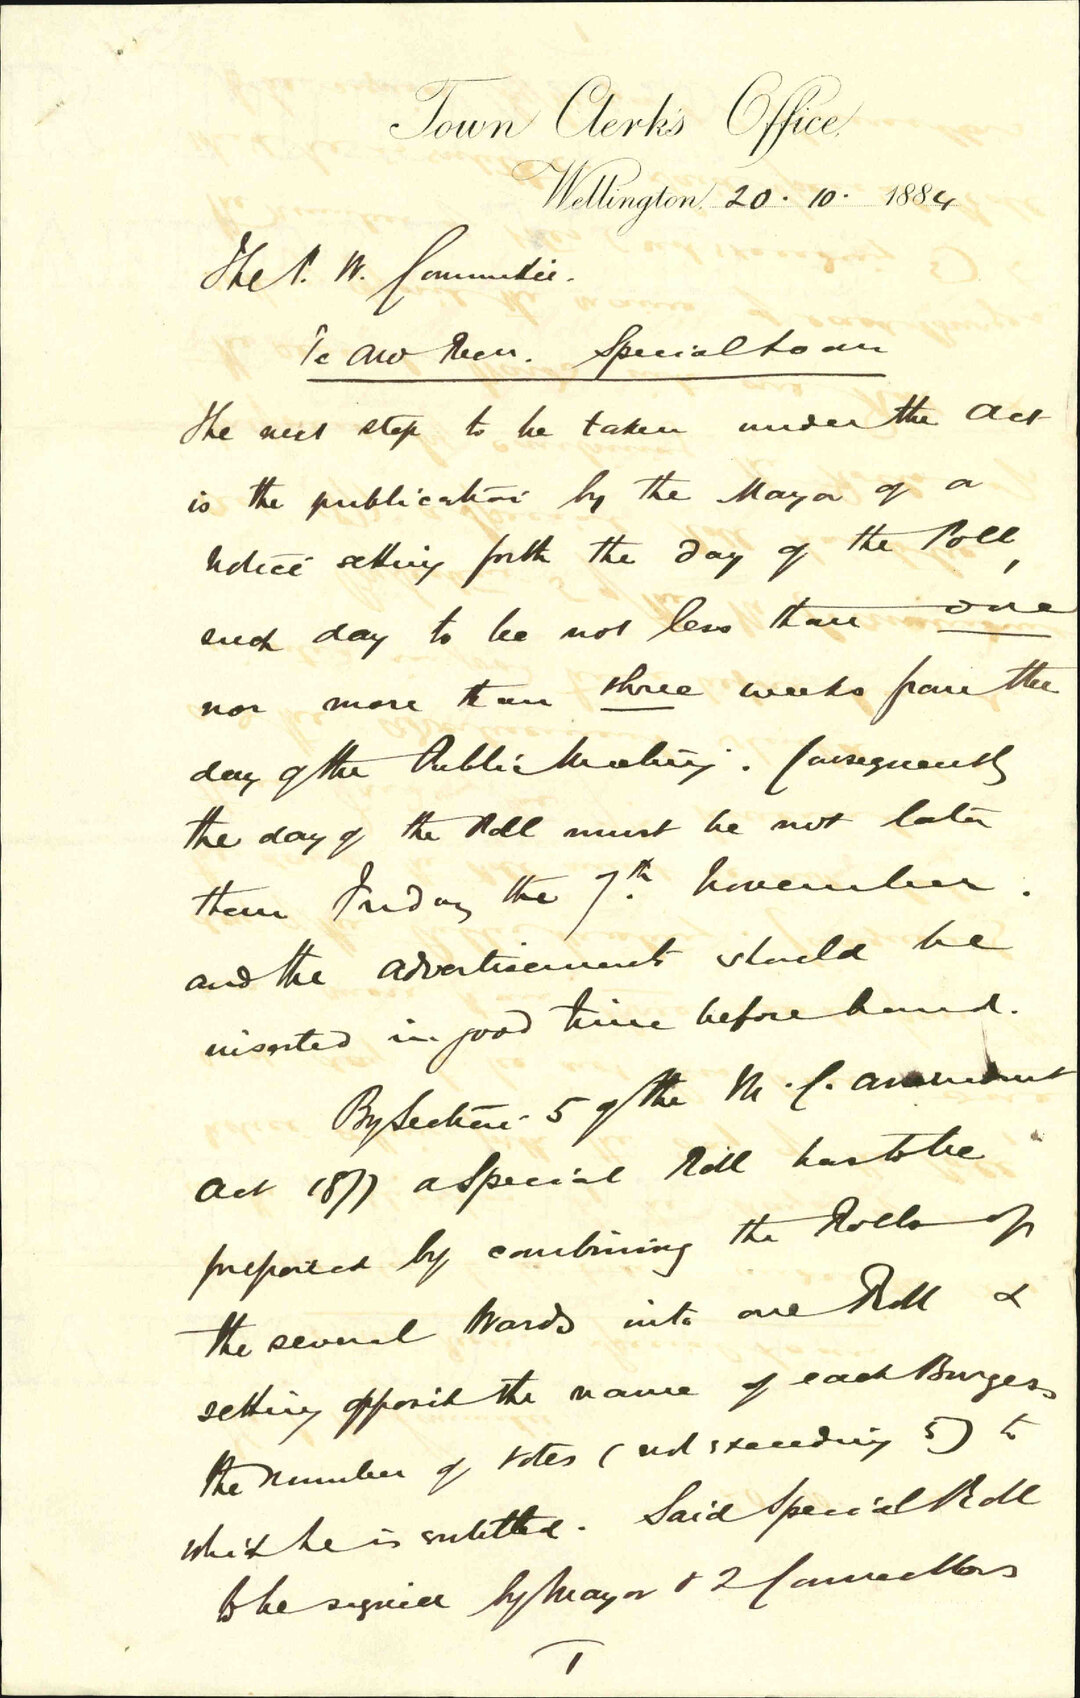 Town Clerk's Office,
Wellington, 20. 10. 1884
The P. W. Committee.
Te Aro Recn. Special Loan
The next step to be taken under the Act
is the publication by the Mayor of a
Notice setting forth the day of the Poll,
such day to be not less than one
nor more than three weeks from the
day of the Public Meeting. Consequently
the day of the Poll must be not later
than Friday the 7th. November.
and the advertisements should be
inserted in good time before hand.
By Section 5 of the M. C. Amendment
Act 1877 a Special Roll has to be
prepared by combining the Rolls of
the several Wards into one Roll &
setting opposite the name of each Burgess
the number of votes (not exceeding 5) to
which he is entitled. Said Special Roll
to be signed by Mayor & 2 Councillors